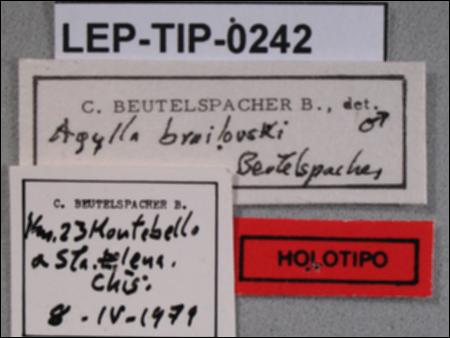 LEP-TIP-0242
C. BEUTELSPACHER B., det.
Agylla brailovski ♂
Beutelspacher
C. BEUTELSPACHER B.
Km. 23 Montebello
a Sta. Elena.
Chis.
8 - IV - 1979
HOLOTIPO